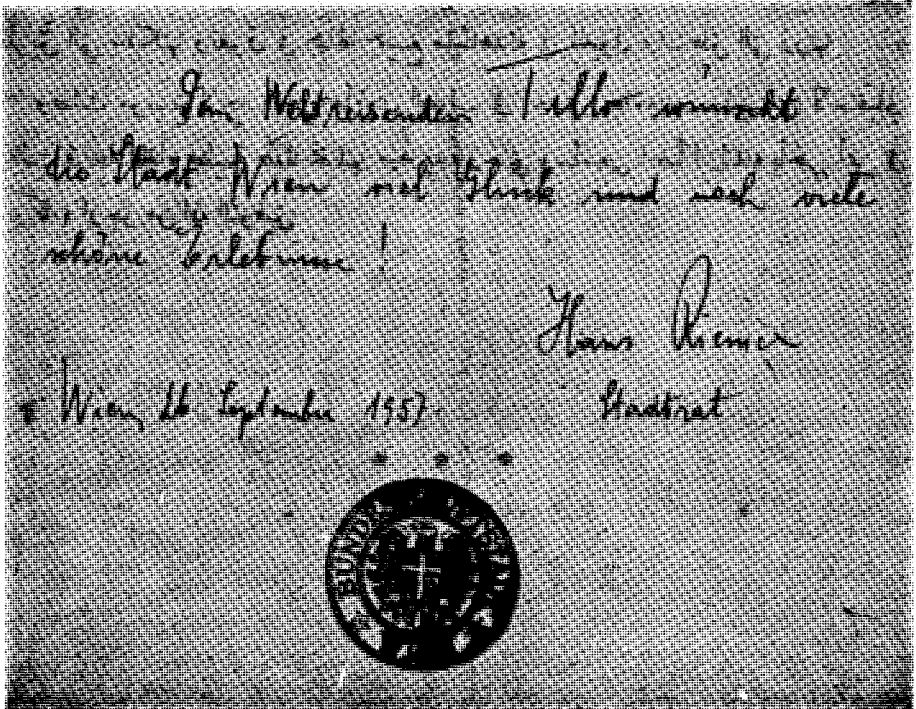 Dem Weltreisenden Tillo wünscht
die Stadt Wien viel Glück und noch viele
schöne Erlebnisse !
Hans Riemer
Wien, 26 September 1957.
Stadtrat
BUNDES